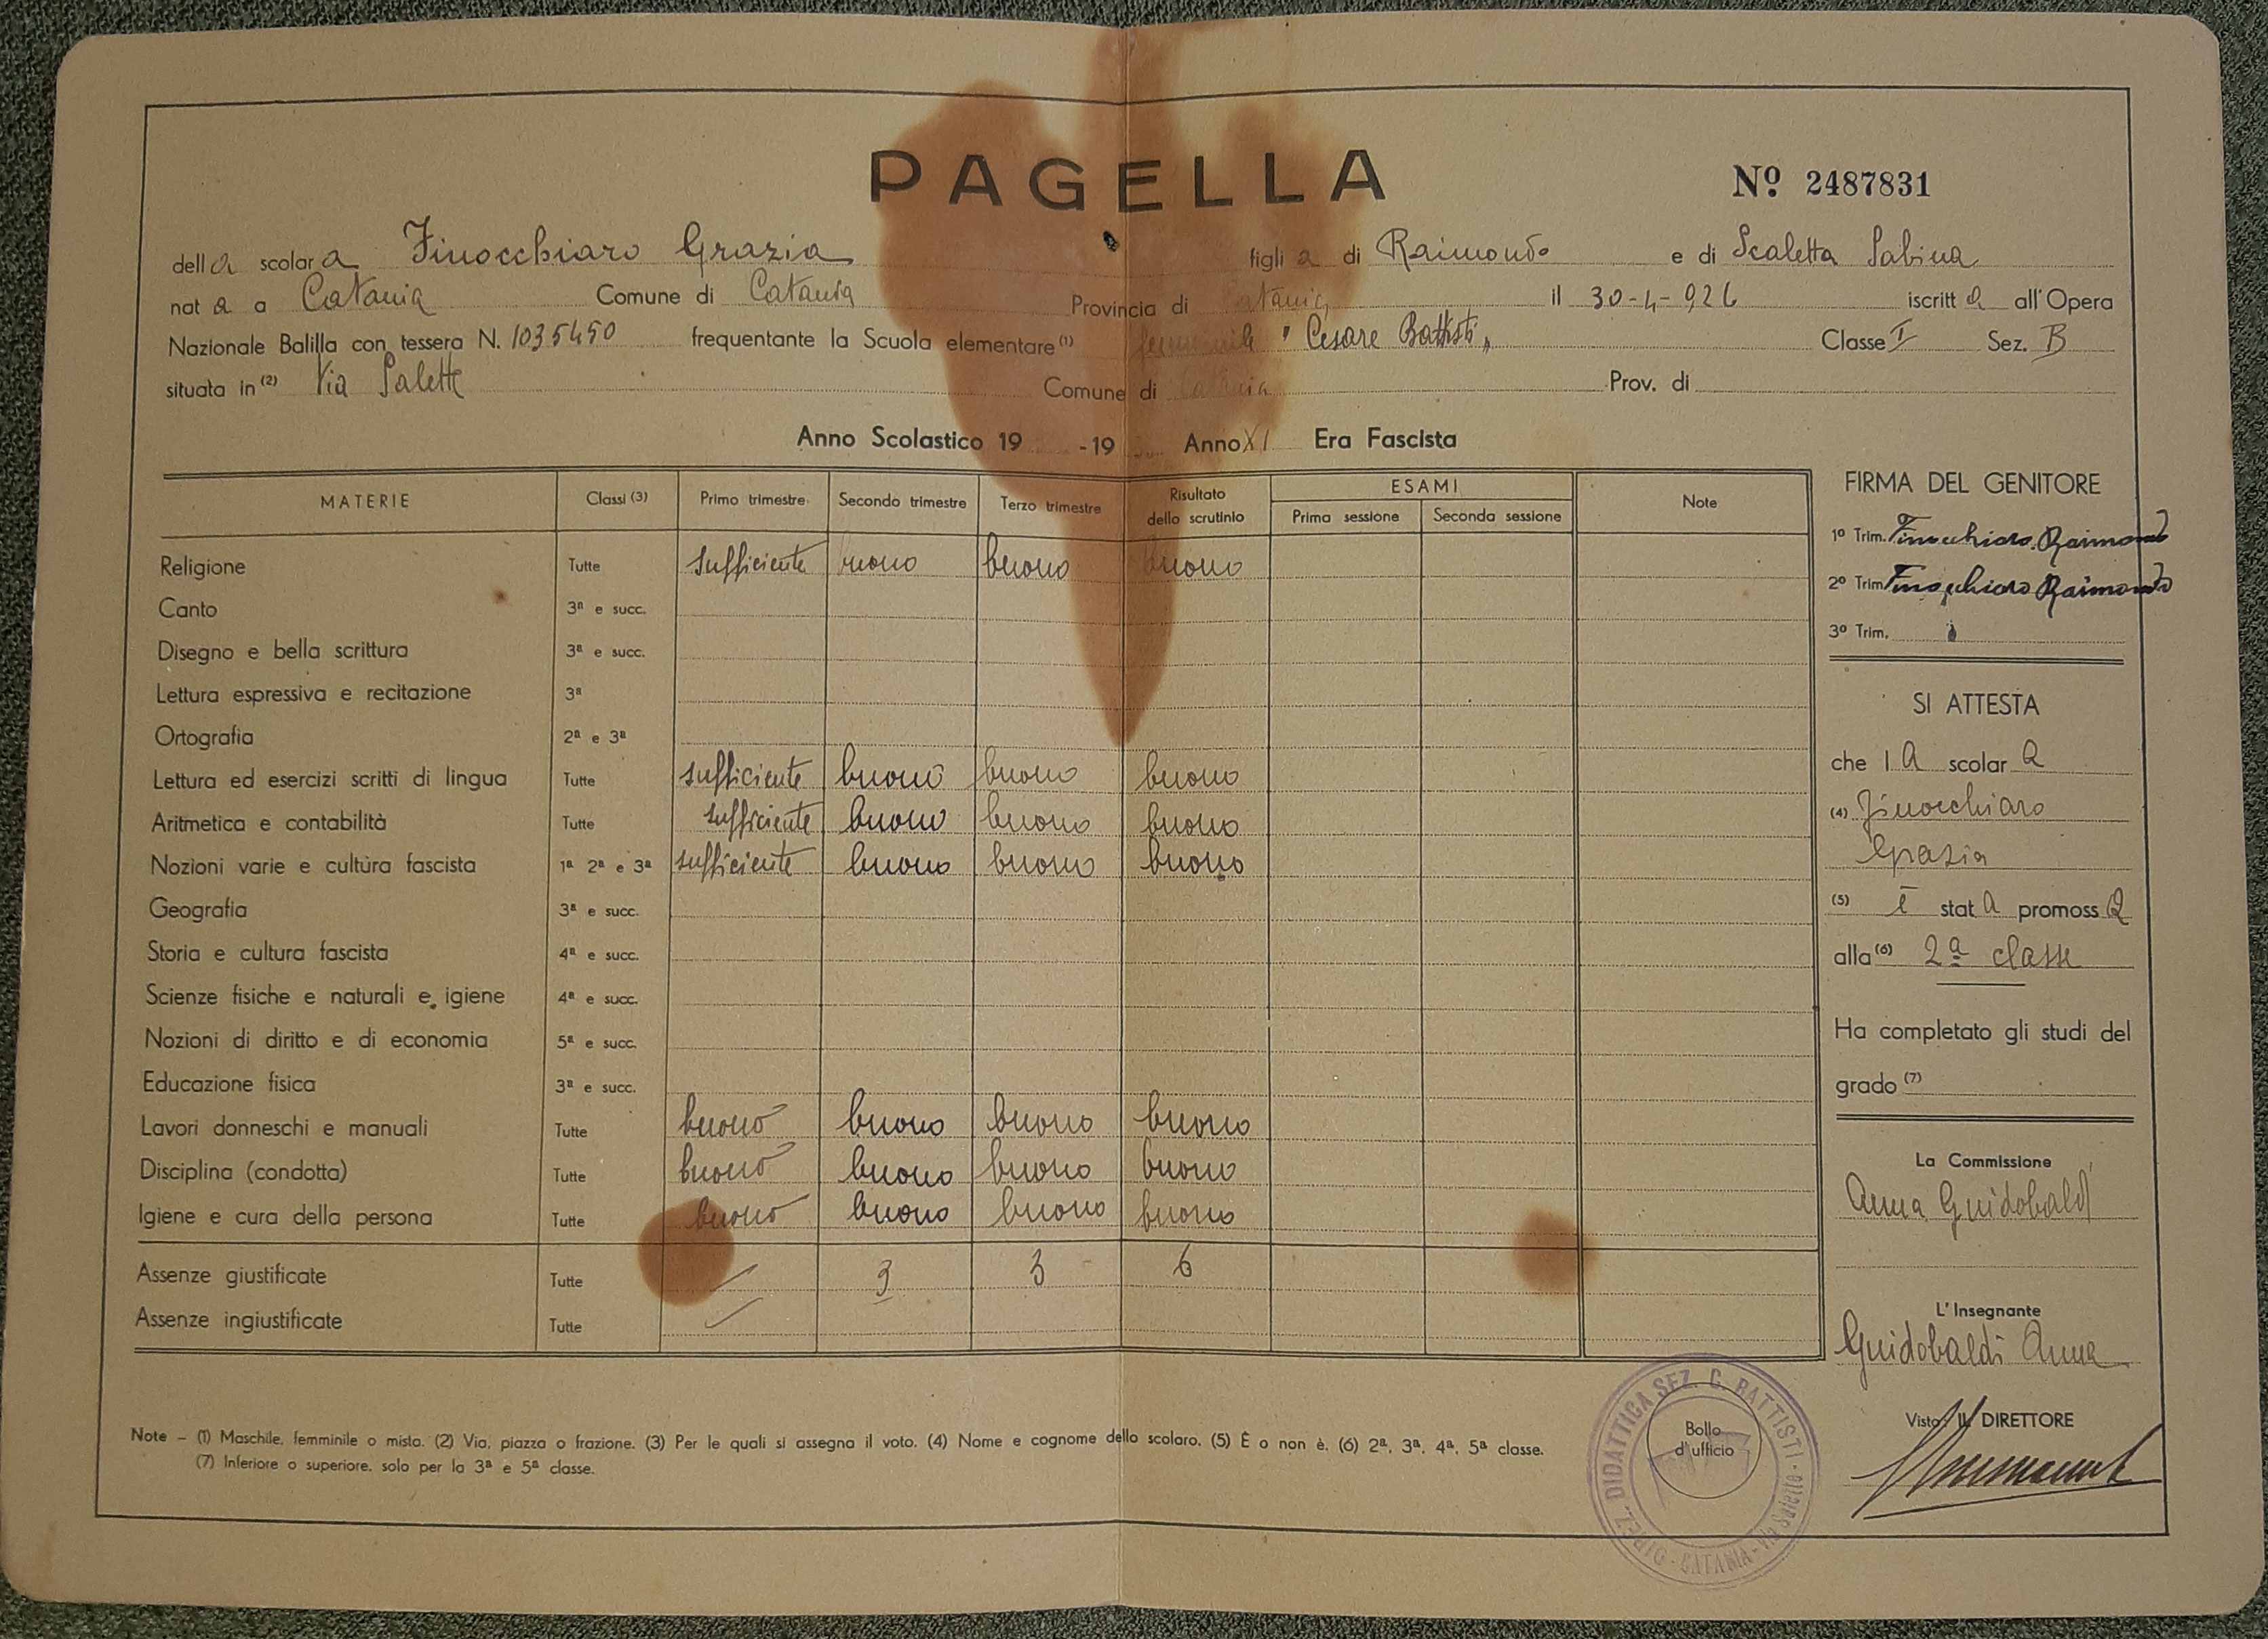 PAGELLA
Nº 2487831
della scolara Finocchiaro Grazia figlia di Raimondo e di Scaletta Sabina
nata a Catania Comune di Catania Provincia di Catania il 30-4-926 iscritta all'Opera
Nazionale Balilla con tessera N. 1035450 frequentante la Scuola elementare (1) femminile "Cesare Battisti" Classe I Sez. B
situata in (2) Via Salette Comune di Catania Prov. di
Anno Scolastico 19 -19 Anno XI Era Fascista
MATERIE Classi (3) Primo trimestre Secondo trimestre Terzo trimestre Risultato dello scrutinio ESAMI Prima sessione Seconda sessione Note
Religione Tutte sufficiente buono buono buono
Canto 3ª e succ.
Disegno e bella scrittura 3ª e succ.
Lettura espressiva e recitazione 3ª
Ortografia 2ª e 3ª
Lettura ed esercizi scritti di lingua Tutte sufficiente buono buono buono
Aritmetica e contabilità Tutte sufficiente buono buono buono
Nozioni varie e cultura fascista 1ª 2ª e 3ª sufficiente buono buono buono
Geografia 3ª e succ.
Storia e cultura fascista 4ª e succ.
Scienze fisiche e naturali e igiene 4ª e succ.
Nozioni di diritto e di economia 5ª e succ.
Educazione fisica 3ª e succ.
Lavori donneschi e manuali Tutte buono buono buono buono
Disciplina (condotta) Tutte buono buono buono buono
Igiene e cura della persona Tutte buono buono buono buono
Assenze giustificate Tutte / 3 3 6
Assenze ingiustificate Tutte /
FIRMA DEL GENITORE
1º Trim. Finocchiaro Raimondo
2º Trim. Finocchiaro Raimondo
3º Trim.
SI ATTESTA
che la scolara
(4) Finocchiaro
Grazia
(5) è stata promossa
alla (6) 2ª classe
Ha completato gli studi del
grado (7)
La Commissione
Anna Guidobaldi
L'Insegnante
Guidobaldi Anna
Visto: IL DIRETTORE
Bollo
d'ufficio
DIREZ. DIDATTICA SEZ. C. BATTISTI - CATANIA - Via Salette
Note - (1) Maschile, femminile o mista. (2) Via, piazza o frazione. (3) Per le quali si assegna il voto. (4) Nome e cognome dello scolaro. (5) È o non è. (6) 2ª, 3ª, 4ª, 5ª classe.
(7) Inferiore o superiore, solo per la 3ª e 5ª classe.